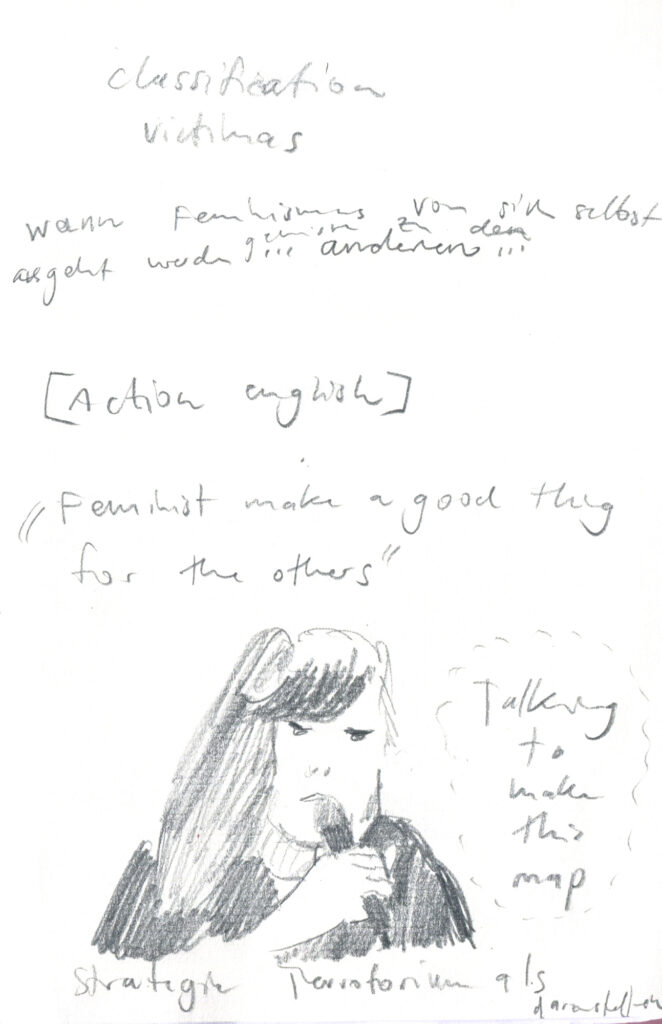 classification
victimas
wann Feminismus von sich selbst
ausgeht zu den
anderen ...
[Action english]
„Feminist make a good thing
for the others"
Talking
to
make
this
map
Strategie als